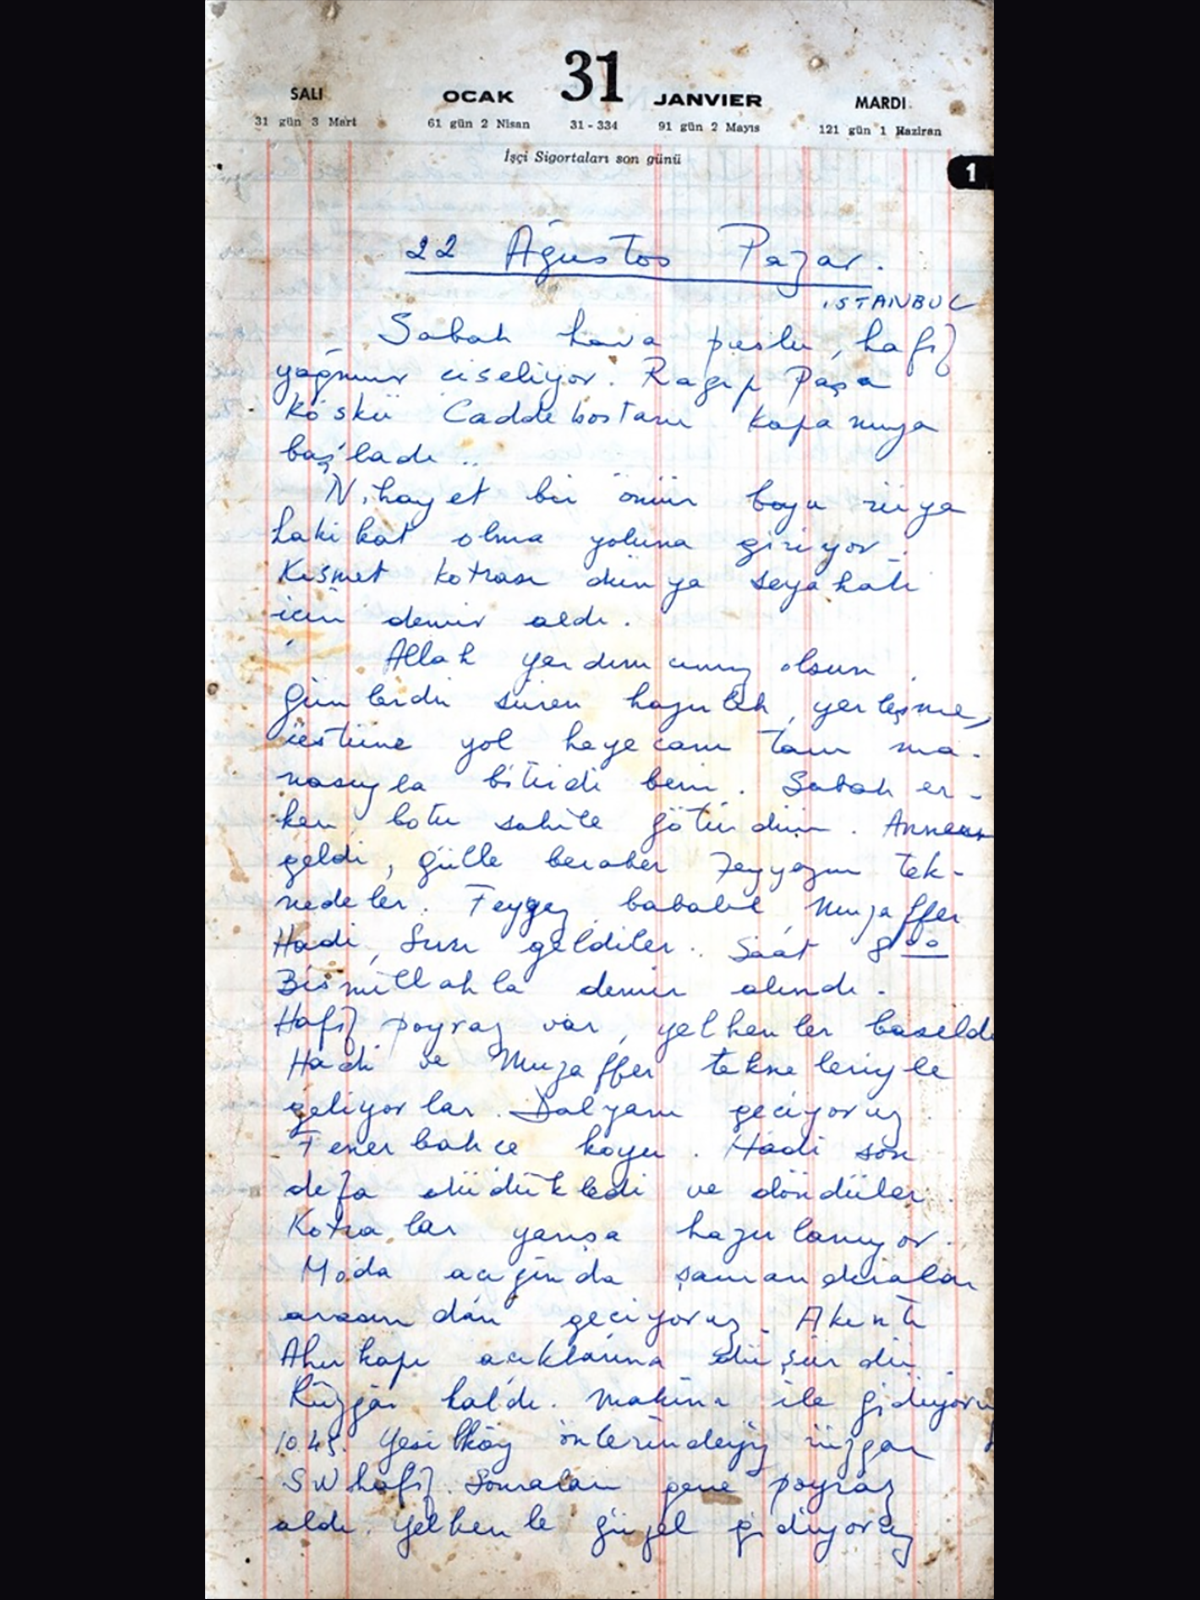 31
SALI OCAK JANVIER MARDI
31 gün 3 Mart 61 gün 2 Nisan 31-334 91 gün 2 Mayıs 121 gün 1 Haziran
İşçi Sigortaları son günü
1
22 Ağustos Pazar.
İSTANBUL
Sabah hava puslu, hafif
yağmur çiseliyor. Ragıp Paşa
köşkü Caddebostanı kapanmıya
başladı..
Nihayet bir ömür boyu rüya
hakikat olma yoluna giriyor.
Kısmet kotrası dünya seyahati
için demir aldı.
Allah yardımcımız olsun.
Günlerdir süren hazırlık, yerleşme,
üstüne yol heyecanı tam ma-
nasıyla bitirdi beni. Sabah er-
ken botu sahile götürdüm. Annem
geldi, Gülle beraber Feyyazın tek-
nedeler. Feyyaz babalık Muzaffer
Hadi, Susu geldiler. Saat 8 00
Bismillahla demir alındı.
Hafif poyraz var, yelkenler basıldı
Hadi ve Muzaffer tekneleriyle
geliyorlar. Dalyanı geçiyoruz
Fenerbahçe koyu. Hadi son
defa düdükledi ve döndüler.
Kotralar yarışa hazırlanıyor.
Moda açığında şamandıralar
arasından geçiyoruz. Akıntı
Ahırkapı açıklarına düşürdü.
Rüzgâr kaldı. Makina ile gidiyoruz
10.45. Yeşilköy önlerindeyiz rüzgar
SW hafif. Sonraları gene poyraz
aldı. Yelkenle güzel gidiyoruz